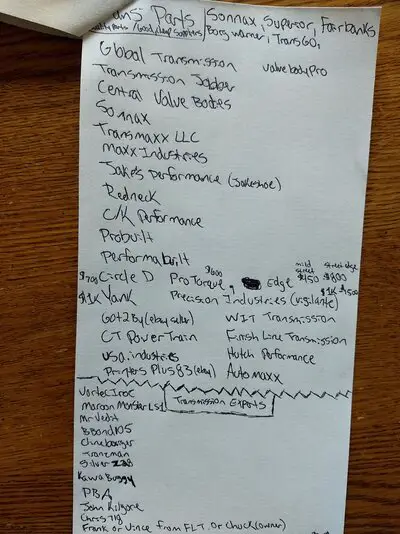 Trans Parts / Sonnax, Superior, Fairbanks
Quality Parts / Good/cheap suppliers / Borg warner, TransGO,
Global Transmission valvebodyPro
Transmission Jobber
Central Valve Bodies
Sonnax
Transmaxx LLC
Maxx Industries
Jake's Performance (Jakeshoe)
Redneck
C/K Performance
Probuilt
Performabuilt
$600 mild street street edge
$700 Circle D ProTorque, Edge $450 $800
$1K Yank Precision Industries (vigilante) $1K $1500
Got2By (ebay seller) WIT Transmission
CT PowerTrain Finish Line Transmission
USA industries Hutch Performance
Printers Plus83 (ebay) Automaxx
Transmission Experts
VortecIroc
Maroon Monster LS1
Mr Vedit
BBond105
Clinebarger
Tranzman
Silver
KawaBuggy
PBA
John Kilgore
Chris718
Frank or Vince from FLT, or Chuck (owner)